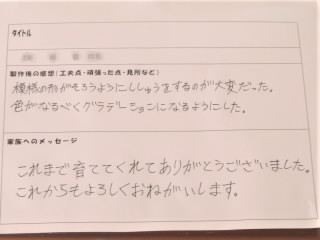 タイトル
製作後の感想(工夫点・頑張った点・見所など)
模様の形がそろうようにししゅうをするのが大変だった。
色がなるべくグラデーションになるようにした。
家族へのメッセージ
これまで育ててくれてありがとうございました。
これからもよろしくおねがいします。